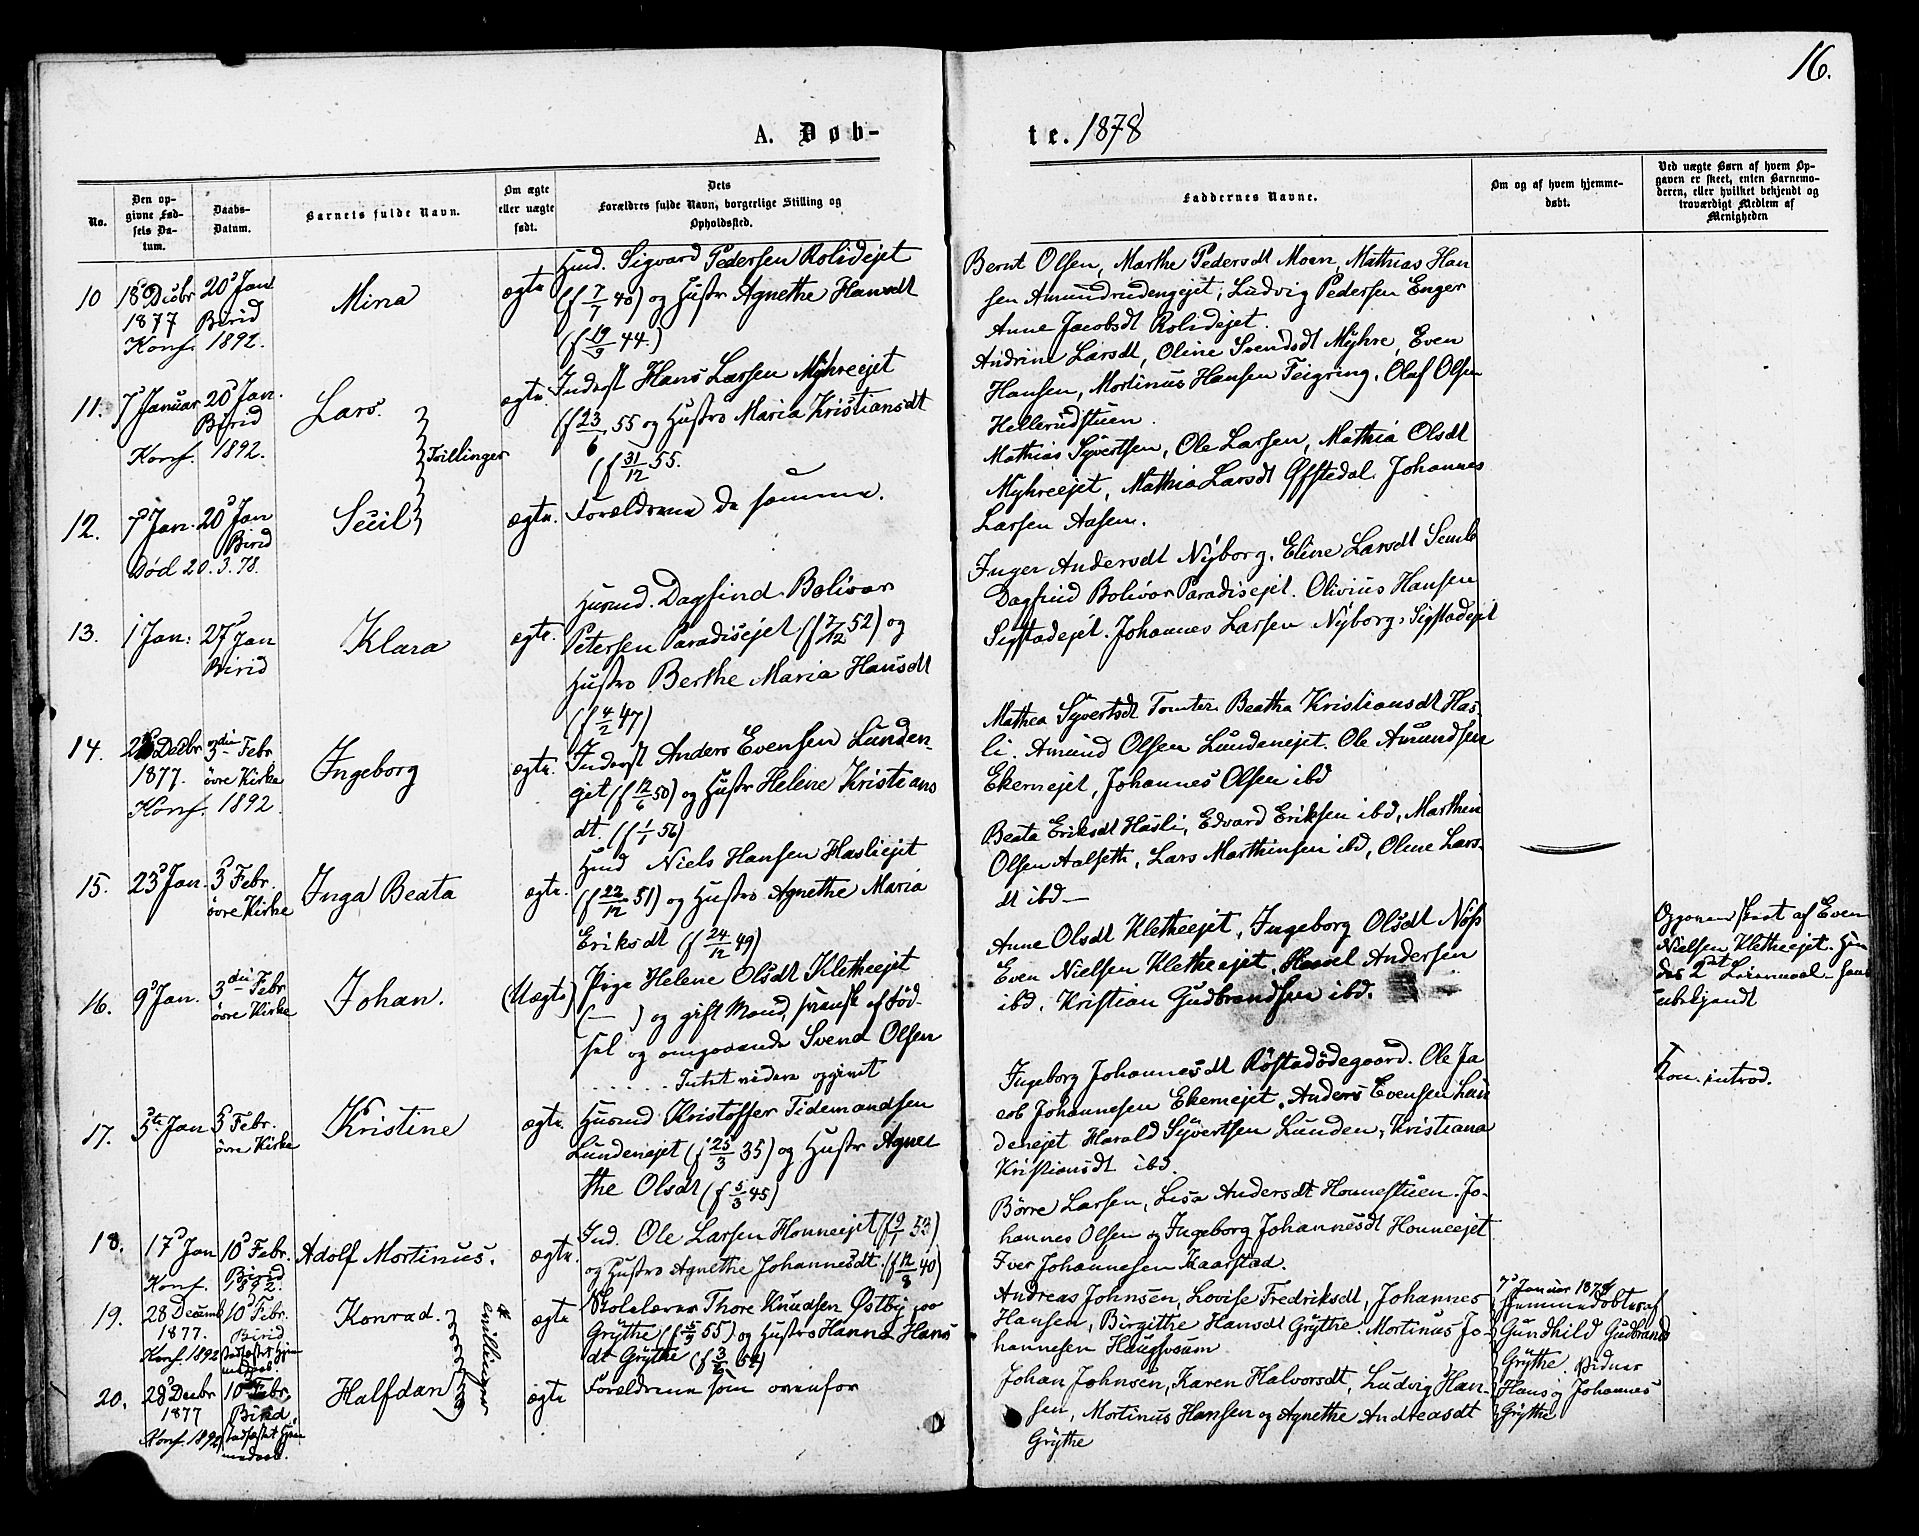 16.
A. Døb-
te. 1878
No.
Den op-
givne Fød-
sels Da-
tum.
Daabs-
Datum.
Barnets fulde Navn.
Om ægte
eller uægte
født.
Dets
Forældres fulde Navn, borgerlige Stilling og
Opholdssted.
Faddernes Navne.
Om og af hvem hjemme-
døbt.
Ved uægte Børn af hvem Op-
gaven er skeet, enten Barnemo-
deren, eller hvilket bekjendt og
troværdigt Medlem af
Menigheden
10
18 Decbr
1877
Konf. 1892.
20 Jan
Birid
Mina
ægte
Husmd. Sigvard Pedersen Rolidejet
(f 7/7 48) og Hustr Agnethe Hansdt
(f 19/9 44.)
Bernt Olsen, Marthe Pedersdt Moen, Mathias Han
sen Amundrudengejet, Ludvig Pedersen Enger
Anne Jacobsdt Rolidejet.
11.
7 Januar
20 Jan.
Birid
Konf. 1892.
Lars.
Tvillinger
ægte.
Inderst Hans Larsen Myhreejet
(f 23/6 55 og Hustro Maria Kristiansdt
(f 31/12 55.
Andrine Larsdt, Oline Svendsdt Myhre, Even
Hansen, Mortinus Hansen Teigring, Olaf Olsen
Hellerudstuen.
12.
7 Jan.
20 Jan
Birid
Død 20.3.78.
Secil
ægte.
Forældrene de samme.
Mathias Syvertsen, Ole Larsen, Mathia Olsdt
Myhreejet, Mathia Larsdt Øfstedal Johannes
Larsen Aasen.
13.
1 Jan:
27 Jan
Birid
Klara
ægte.
Husmd. Dagfind Bolivar
Petersen Paradisejet (f 7/12 52) og
Hustro Berthe Maria Hansdt
(f 4/2 47)
Inger Andersdt Nyborg, Eline Larsdt Semb
Dagfind Bolivar Paradisejet. Olivius Hansen
Sigstadejet. Johannes Larsen Nyborg, Sigstadejet
14.
Decbr
1877.
3die Febr
øvre Kirke
Konf. 1892.
Ingeborg
ægte.
Inderst Anders Evensen Lunden-
get (f 12/6 50) og Hustr Helene Kristians
dt. (f 1/1 56)
Mathea Syvertsdt Tomter Beatha Kristiansdt Has-
li. Amund Olsen Lundenejet. Ole Amundsen
Ekernejet, Johannes Olsen ibd
15.
23 Jan.
3 Febr.
øvre Kirke
Inga Beata
ægte.
Husmd Niels Hansen Hasliejet
(f 22/12 51) og Hustro Agnethe Maria
Eriksdt (f 24/12 49)
Beata Eriksdt Hasli, Edvard Eriksen ibd, Marthin
Olsen Aalseth, Lars Marthinsen ibd, Oline Lars-
dt ibd —
16.
9 Jan.
3die Febr
øvre Kirke
Johan.
(Uægte)
Pige Helene Olsdt Kletheejet
(— ) og gift Mand, svensk af Fød-
sel og omgaaende Svend Olsen
...... Intet videre opgivet
Anne Olsdt Kletheejet, Ingeborg Olsdt Nøss
Even Nielsen Kletheejet, Andersen
ibd. Kristian Gudbrandsen ibd.
Opgaven skeet af Even
Nielsen Kletheejet. Hen
des 2det Leiermaal — hans
ubekjendt
Kon. introd.
17.
5te Jan
3 Febr.
øvre Kirke
Kristine
ægte.
Husmd Kristoffer Tidemandsen
Lundenejet (f 25/3 35) og Hustr Agne
the Olsdt (f 5/3 45)
Ingeborg Johannesdt Røstadødegaard. Ole Ja
cob Johannesen Ekernejet, Anders Evensen Lun
denejet Harald Syvertsen Lunden, Kristiana
Kristiansdt ibd.
18.
17 Jan
10 Febr.
Birid
Konf. 1892.
Adolf Mortinus.
ægte.
Ind. Ole Larsen Honneejet (f 9/1 53)
og Hustro Agnethe Johannesdt. (f 12/8 40)
Børre Larsen, Lisa Andersdt Honnestuen. Jo-
hannes Olsen og Ingeborg Johannesdt Honneejet
Iver Johannesen Kaarstad.
19.
28 Decemb
1877.
Konf. 1892
10 Febr.
Birid
stadfæstet Hjem
medaab.
Konrad.
Tvillinger
ægte
Skolelærer Thore Knudsen Østby paa
Grythe (f 5/9 55) og Hustro Hanna Hans
dt Grythe (f 3/2 54)
Andreas Johnsen, Lovise Fredriksdt, Johannes
Hansen, Birgitthe Hansdt Grythe. Mortinus Jo-
hannesen Haugsveen
7 Januar 1878
Hjemmedøbte af
Gundhild Gudbrand
Grythe Vidner
Hans og Johannes
Grythe
20.
28 Decbr
1877
Konf. 1892
10 Febr.
Birid
stadfæstet Hjem
medaab.
Halfdan
ægte
Forældrene som ovenfor
Johan Johnsen, Karen Halvorsdt, Ludvig Han-
sen, Mortinus Hansen og Agnethe Andreasdt
Grythe